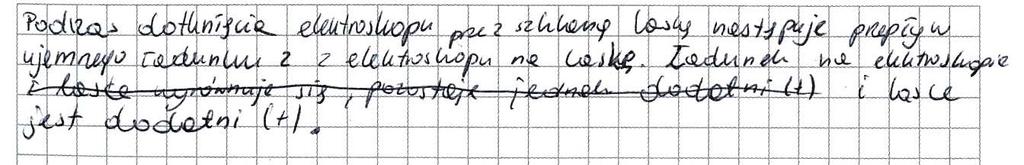 Podczas dotknięcia elektroskopu przez szklaną laskę następuje przepływ
ujemnego ładunku z z elektroskopu na laskę. Ładunek na elektroskopie
i laska wyrównuje się, pozostaje jednak dodatni (+) i lasce
jest dodatni (+).